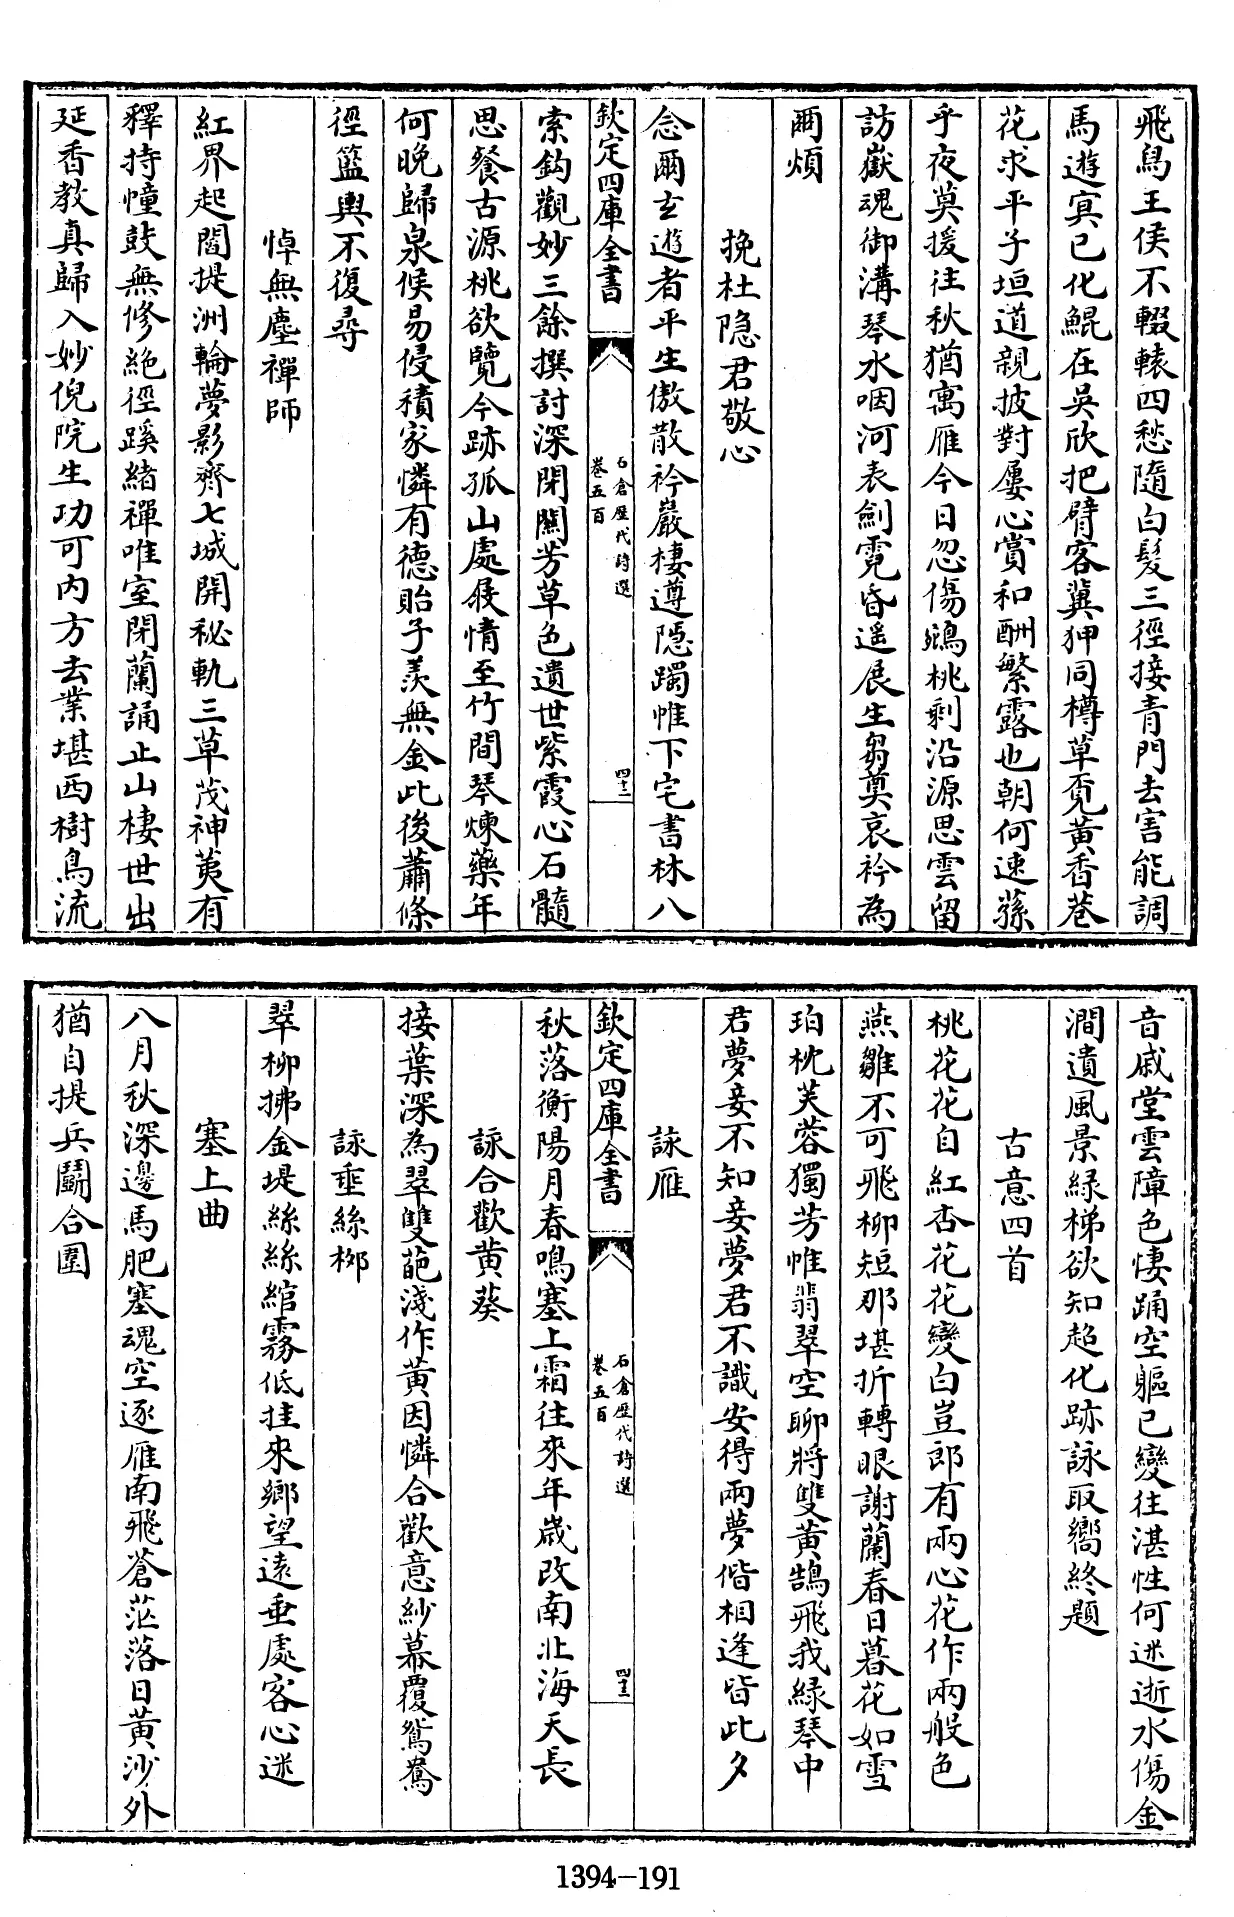 飛鳥王侯不輟轅四愁隨白髮三徑接青門去害能調
馬遊寘已化鯤在吳欣把臂客冀狎同樽草覓黃香巷
花求平子垣道親披對屢心賞和酬繁露也朝何速蓀
乎夜莫援往秋猶寓雁今日忽傷鵷桃剩沿源思雲留
訪嶽魂御溝琴水咽河表劍霓昏遥展生芻奠哀衿為
爾煩
挽杜隐君敬心
念爾玄遊者平生傲散衿巖棲遵隱躅帷下宅書林八
欽定四庫全書
石倉歷代詩選
卷五百
四十二
索鈎觀妙三餘撰討深閉關芳草色遺世紫霞心石髓
思餐古源桃欲覽今跡孤山處展情至竹間琴煉藥年
何晚歸泉候易侵積家憐有德貽子羡無金此後蕭條
徑籃輿不復尋
悼無塵禪師
紅界起閻提洲輪夢影齊七城開秘軌三草茂神荑有
釋持幢鼓無修絶徑蹊緒禪唯室閉蘭誦止山棲世出
延香教真歸入妙倪院生功可内方去業堪西樹鳥流
音戚堂雲障色悽踊空軀已變往湛性何迷逝水傷金
澗遺風景緑梯欲知超化跡詠取嚮終題
古意四首
桃花花自紅杏花花變白豈郎有兩心花作兩般色
燕雛不可飛柳短那堪折轉眼謝蘭春日暮花如雪
珀枕芙蓉獨芳帷翡翠空聊將雙黃鵠飛我緑琴中
君夢妾不知妾夢君不識安得兩夢偕相逢皆此夕
詠雁
欽定四庫全書
石倉歷代詩選
卷五百
四十三
秋落衡陽月春鳴塞上霜往來年歲改南北海天長
詠合歡黃葵
接葉深為翠雙葩淺作黃因憐合歡意紗幕覆鴛鴦
詠垂絲柳
翠柳拂金堤絲絲綰霧低挂來鄉望遠垂處客心迷
塞上曲
八月秋深邊馬肥塞魂空逐雁南飛蒼茫落日黃沙外
猶自提兵鬭合圍
1394-191